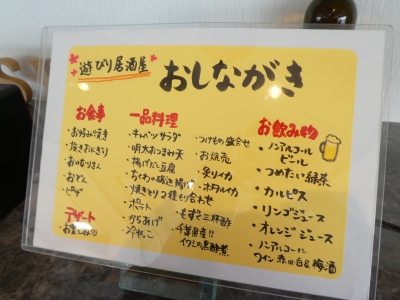 遊びり居酒屋
おしながき
お食事
・お好み焼き
・焼きおにぎり
・おいなりさん
・おでん
・ピザ
デザート
・お楽しみ
一品料理
・キャベツサラダ
・明太おつまみ天
・揚げだし豆腐
・ちくわの磯辺揚げ
・焼きとり2種もり合わせ
・ポテト
・からあげ
・冷やっこ
・つけもの盛合せ
・お焼売
・炙りイカ
・ホタルイカ
・もずく三杯酢
・千葉県産!!
イワシの黒酢煮
お飲み物
・ノンアルコール
ビール
・つめたい緑茶
・カルピス
・リンゴジュース
・オレンジジュース
・ノンアルコール
ワイン 赤or白&梅酒